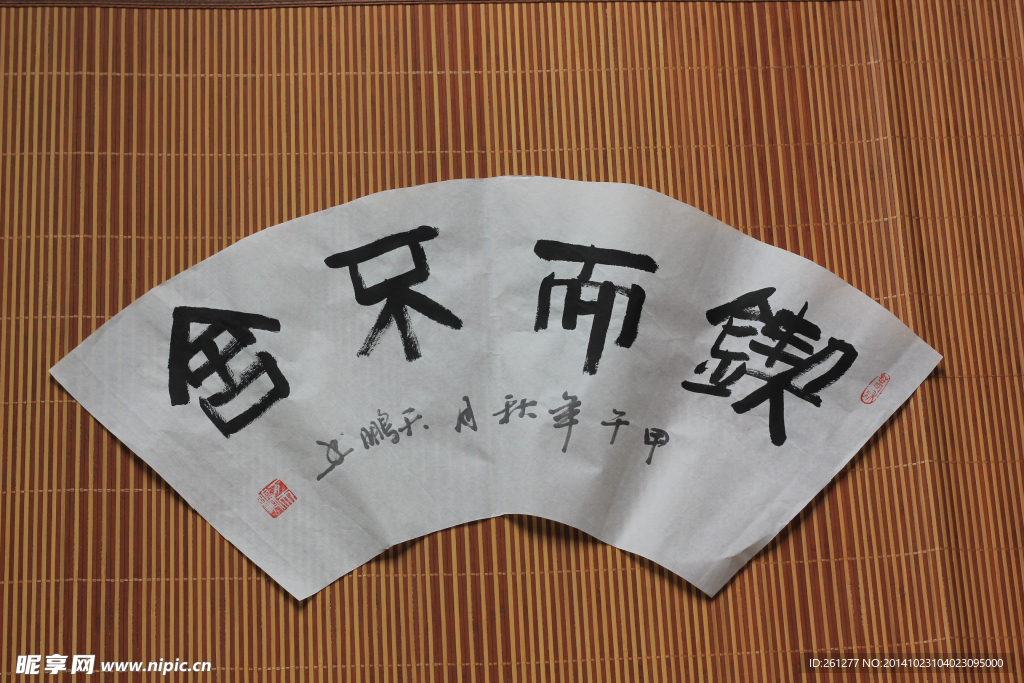 鍥而不舍
甲午年秋月天鹏书
昵享网 www.nipic.cn
ID:261277 NO:20141023104023095000